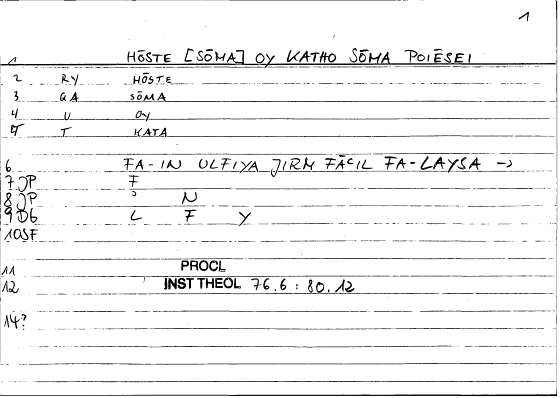 1
1 HŌSTE [SŌMA] OY KATHO SŌMA POIĒSEI
2 RY HŌSTE
3 QA SŌMA
4 U OY
5 T KATA
6 FA-IN ULFIYA JIRM FĀCIL FA-LAYSA →
7 JP F
8 JP ' N
9 DG L F Y
10 SF
11 PROCL
12 INST THEOL 76.6 : 80.12
14?